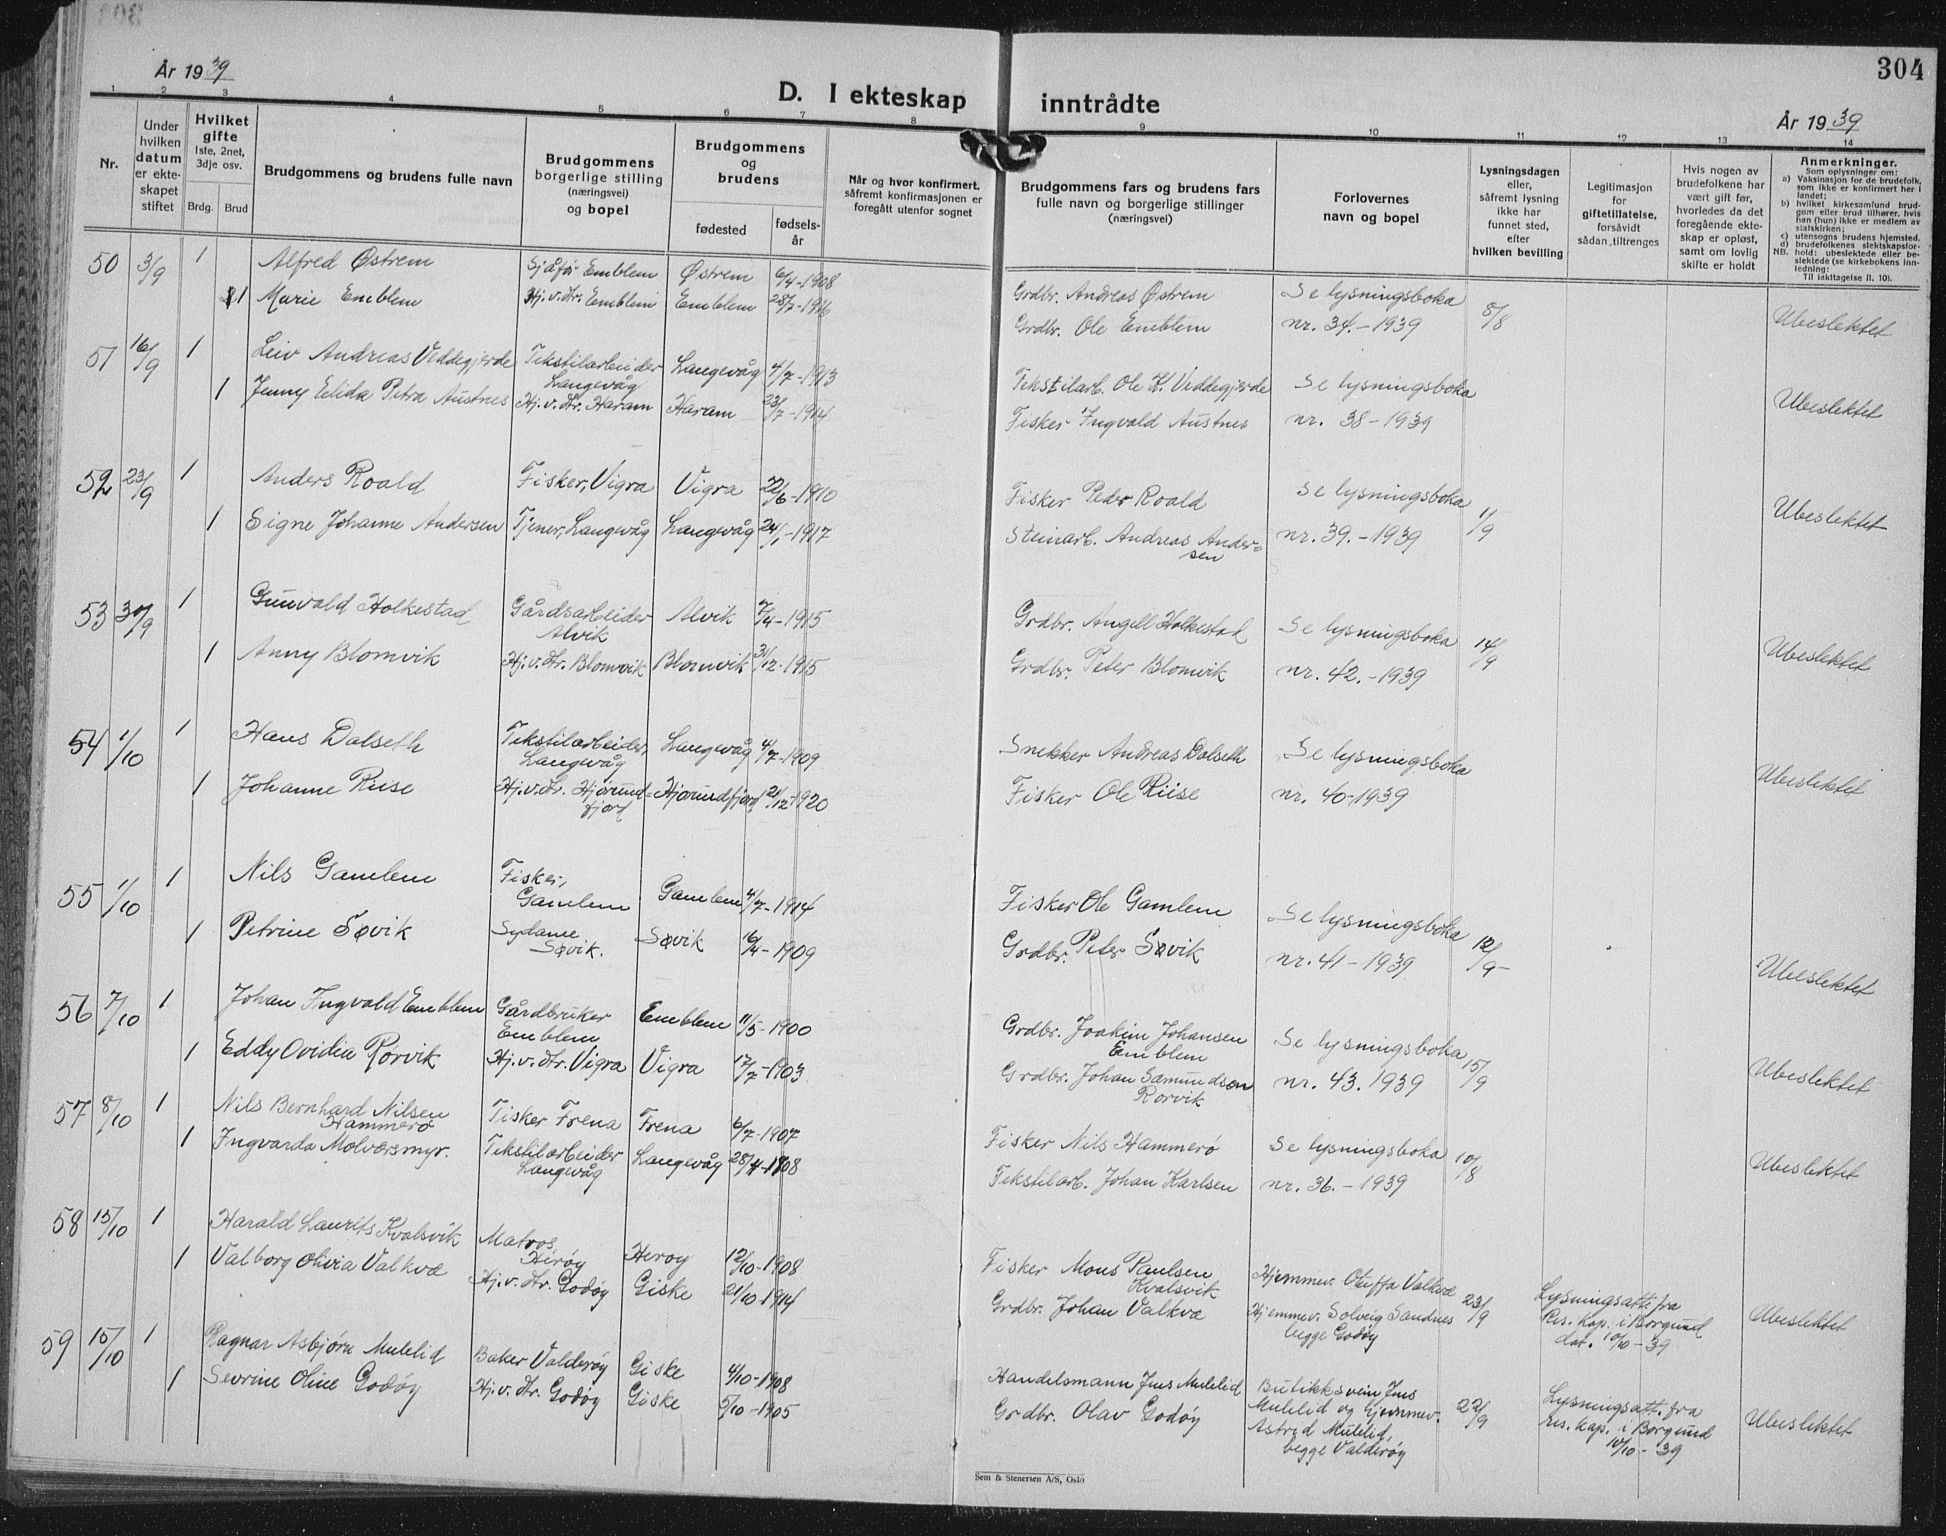 304
År 1939
D. I ekteskap inntrådte
År 1939
1 2 3 4 5 6 7 8 9 10 11 12 13 14
Nr.
Under hvilken datum er ekteskapet stiftet
Hvilket gifte
1ste, 2net, 3dje osv.
Brdg. Brud
Brudgommens og brudens fulle navn
Brudgommens borgerlige stilling (næringsvei) og bopel
Brudgommens og brudens
fødested
fødsels-år
Når og hvor konfirmert, såfremt konfirmasjonen er foregått utenfor sognet
Brudgommens fars og brudens fars fulle navn og borgerlige stillinger (næringsvei)
Forlovernes navn og bopel
Lysningsdagen eller, såfremt lysning ikke har funnet sted, efter hvilken bevilling
Legitimasjon for giftetillatelse, forsåvidt sådan tiltrenges
Hvis nogen av brudefolkene har vært gift før, hvorledes da det foregående ekteskap er opløst, samt om lovlig skifte er holdt
Anmerkninger.
Som oplysninger om:
a) Vaksinasjon for de brudefolk, som ikke er konfirmert her i landet;
b) hvilket kirkesamfund brudgom eller brud tilhører, hvis han (hun) ikke er medlem av statskirken;
c) utensogns brudens hjemsted.
d) brudefolkenes slektskapsforhold: ubeslektede eller beslektede (se kirkebokens innledning:
NB.
Til iakttagelse II. 10).
50 3/9 1 Alfred Østrem Sjåfør Emblem Østrem 6/4-1908 Grdbr. Andreas Østrem Se lysningsboka 8/8 Ubeslektet
1 Marie Emblem Hj.v. dtr. Emblem Emblem 28/7-1916 Grdbr. Ole Emblem nr. 34.-1939
51 16/9 1 Leiv Andreas Veddegjerde Tekstilarbeider Langevåg Langevåg 4/7-1913 Tekstilarb. Ole K. Veddegjerde Se lysningsboka Ubeslektet
1 Jenny Elida Petra Austnes Hj.v. dtr. Haram Haram 23/7-1914 Fisker Ingvald Austnes nr. 38-1939
52 23/9 1 Anders Roald Fisker, Vigra Vigra 22/6-1910 Fisker Peder Roald Se lysningsboka 11/9 Ubeslektet
1 Signe Johanne Andersen Tjener, Langevåg Langevåg 24/1-1917 Steinarb. Andreas Andersen nr. 39.-1939
53 30/9 1 Gunvald Holkestad Gårdsarbeider Alvik Alvik 7/4-1915 Grdbr. Angell Holkestad Se lysningsboka 14/9 Ubeslektet
1 Anny Blomvik Hj.v. dtr. Blomvik Blomvik 31/12-1915 Grdbr. Peter Blomvik nr. 42.-1939
54 1/10 1 Hans Dalseth Tekstilarbeider, Langevåg Langevåg 4/7-1909 Snekker Andreas Dalseth Se lysningsboka Ubeslektet
1 Johanne Riise Hj.v. dtr. Hjørundfjord Hjørundfjord 21/12-1920 Fisker Ole Riise nr. 40-1939
55 1/10 1 Nils Gamlem Fisker, Gamlem Gamlem 4/7-1914 Fisker Ole Gamlem Se lysningsboka 12/9- Ubeslektet
1 Petrine Søvik Sydame Søvik. Søvik 16/4-1909 Grdbr. Peter Søvik nr. 41-1939
56 7/10 1 Johan Ingvald Emblem Gårdbruker Emblem Emblem 11/5-1900 Grdbr. Joakim Johansen Emblem Se lysningsboka 15/9 Ubeslektet
1 Eddy Ovidia Rørvik Hj.v. dtr. Vigra Vigra 17/7-1903 Grdbr. Johan Samundson Rorvik nr. 43. 1939
57 8/10 1 Nils Bernhard Nilsen Hammerø Fisker Frena Frena 6/7-1907 Fisker Nils Hammerø Se lysningsboka 10/8 Ubeslektet
1 Ingvarda Molværsmyr. Tekstilarbeider Langevåg Langevåg 28/4-1908 Tekstilarb. Johan Karlsen nr. 36.-1939
58 15/10 1 Harald Laurits Kvalsvik Matros Herøy Herøy 12/10-1908 Fisker Mons Paulsen Kvalsvik Hjemmev. Valkvæ 23/9 Lysningsatt. fra Res. kap. i Borgund dat. 10/10-39 Ubeslektet
1 Valborg Olivia Valkvæ Hj.v. dtr. Godøy Giske 21/10-1914 Grdbr. Johan Valkvæ Hjemmev. Solveig Sandnes begge Godøy
59 15/10 1 Ragnar Asbjørn Mulelid Baker Valderøy Giske 4/10-1908 Handelsmann Jens Mulelid Butikksvein Jens Mulelid og hjemmev. Astrid Mulelid, begge Valderøy 22/9 Lysningsatt. fra res. kap. i Borgund 10/10-39 Ubeslektet
1 Sevrine Oline Godøy Hj.v. dtr. Godøy Giske 5/10-1905 Grdbr. Olav Godøy
Sem & Stenersen A/S, Oslo